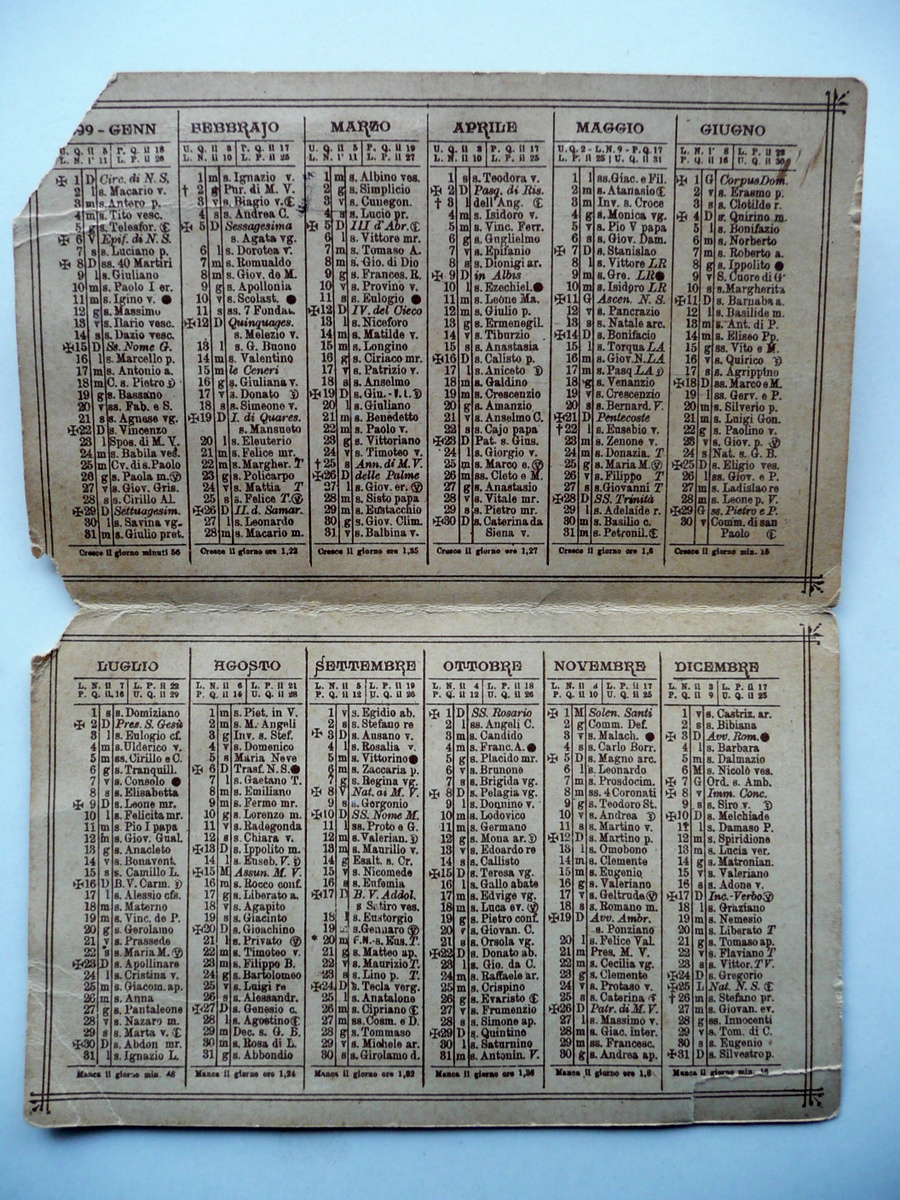 99 - GENN
U. Q. il 5 P. Q. il 18
L. N. l' 11 L. P. il 26
✠ 1 D Circ. di N. S.
2 l s. Macario v.
3 m s. Antero p.
4 m s. Tito vesc.
5 g s. Telesfor. ☾
✠ 6 V Epif. di N. S.
7 s s. Luciano p.
✠ 8 D ss. 40 Martiri
9 l s. Giuliano
10 m s. Paolo I er.
11 m s. Igino v. ●
12 g s. Massimo
13 v s. Ilario vesc.
14 s s. Dazio vesc.
✠15 D Ss. Nome G.
16 l s. Marcello p.
17 m s. Antonio a.
18 m C. s. Pietro ☽
19 g s. Bassano
20 v ss. Fab. e S.
21 s s. Agnese vg.
✠22 D s. Vincenzo
23 l Spos. di M. V.
24 m s. Babila ves.
25 m Cv. di s. Paolo
26 g s. Paola m.
27 v s. Giov. Gris.
28 s s. Cirillo Al.
✠29 D Settuagesim.
30 l s. Savina vg.
31 m s. Giulio pret.
Cresce il giorno minuti 56
FEBBRAJO
U. Q. il 3 P. Q. il 17
L. N. il 10 L. P. il 25
1 m s. Ignazio v.
† 2 g Pur. di M. V.
3 v s. Biagio v. ☾
4 s s. Andrea C.
✠ 5 D Sessagesima
s. Agata vg.
6 l s. Dorotea v.
7 m s. Romualdo
8 m s. Giov. de M.
9 g s. Apollonia
10 v s. Scolast. ●
11 s ss. 7 Fondat.
✠12 D Quinquages.
s. Melezio v.
13 l s. G. Buono
14 m s. Valentino
15 m le Ceneri
16 g s. Giuliana v.
17 v s. Donato ☽
18 s s. Simeone v.
✠19 D I. di Quares.
s. Mansueto
20 l s. Eleuterio
21 m s. Felice mr.
22 m s. Margher. T
23 g s. Policarpo
24 v s. Mattia T
25 s s. Felice T.
✠26 D II. d. Samar.
27 l s. Leonardo
28 m s. Macario m.
Cresce il giorno ore 1,22
MARZO
U. Q. il 5 P. Q. il 19
L. N. l' 11 L. P. il 27
1 m s. Albino ves.
2 g s. Simplicio
3 v s. Cunegon.
4 s s. Lucio pr.
✠ 5 D III d'Abr. ☾
6 l s. Vittore mr.
7 m s. Tomaso A.
8 m s. Gio. di Dio
9 g s. Frances. R.
10 v s. Provino v.
11 s s. Eulogio ●
✠12 D IV. del Cieco
13 l s. Niceforo
14 m s. Matilde v.
15 m s. Longino
16 g s. Ciriaco mr.
17 v s. Patrizio v.
18 s s. Anselmo
✠19 D s. Giu.-V.t. ☽
20 l s. Giuliano
21 m s. Benedetto
22 m s. Paolo v.
23 g s. Vittoriano
24 v s. Timoteo v.
†25 s Ann. di M. V.
✠26 D delle Palme
27 l s. Giov. er.
28 m s. Sisto papa
29 m s. Eustacchio
30 g s. Giov. Clim.
31 v s. Balbina v.
Cresce il giorno ore 1,35
APRILE
U. Q. il 3 P. Q. il 17
L. N. il 10 L. P. il 25
1 s s. Teodora v.
✠ 2 D Pasq. di Ris.
† 3 l dell'Ang. ☾
4 m s. Isidoro v.
5 m s. Vinc. Ferr.
6 g s. Guglielmo
7 v s. Epifanio
8 s s. Dionigi ar.
✠ 9 D in Albis
10 l s. Ezechiel. ●
11 m s. Leone Ma.
12 m s. Giulio p.
13 g s. Ermenegil.
14 v s. Tiburzio
15 s s. Anastasia
✠16 D s. Calisto p.
17 l s. Aniceto ☽
18 m s. Galdino
19 m s. Crescenzio
20 g s. Amanzio
21 v s. Anselmo C.
22 s s. Cajo papa
✠23 D Pat. s. Gius.
24 l s. Giorgio v.
25 m s. Marco e.
26 m ss. Cleto e M.
27 g s. Anastasio
28 v s. Vitale mr.
29 s s. Pietro mr.
✠30 D s. Caterina da
Siena v.
Cresce il giorno ore 1,27
MAGGIO
U. Q. 2 - L. N. 9 - P. Q. 17
L. P. il 25 | U. Q. il 31
1 l ss. Giac. e Fil.
2 m s. Atanasio ☾
3 m Inv. s. Croce
4 g s. Monica vg.
5 v s. Pio V papa
6 s s. Giov. Dam.
✠ 7 D s. Stanislao
8 l s. Vittore LR
9 m s. Gre. LR ●
10 m s. Isidoro LR
✠11 G Ascen. N. S.
12 v s. Pancrazio
13 s s. Natale arc.
✠14 D s. Bonifacio
15 l s. Torqua LA
16 m s. Giov. N. LA
17 m s. Pasq LA ☽
18 g s. Venanzio
19 v s. Crescenzio
20 s s. Bernard. V.
✠21 D Pentecoste
†22 l s. Eusebio v.
23 m s. Zenone v.
24 m s. Donazia. T
25 g s. Maria M.
26 v s. Filippo T
27 s s. Giovanni T
✠28 D SS. Trinità
29 l s. Adelaide r.
30 m s. Basilio c.
31 m s. Petronil. ☾
Cresce il giorno ore 1,6
GIUGNO
L. N. l' 8 L. P. il 23
P. Q. il 16 U. Q. il 30
✠ 1 G Corpus Dom.
2 v s. Erasmo p.
3 s s. Clotilde r.
✠ 4 D s. Quirino m.
5 l s. Bonifazio
6 m s. Norberto
7 m s. Roberto a.
8 g s. Ippolito ●
9 v S. Cuore di G
10 s s. Margherita
✠11 D s. Barnaba a.
12 l s. Basilide m.
13 m s. Ant. di P.
14 m s. Eliseo Pp.
15 g ss. Vito e M.
16 v s. Quirico ☽
17 s s. Agrippino
✠18 D ss. Marco e M.
19 l ss. Gerv. e P.
20 m s. Silverio p.
21 m s. Luigi Gon.
22 g s. Paolino v.
23 v s. Giov. p.
24 s Nat. s. G. B.
✠25 D s. Eligio ves.
26 l ss. Giov. e P.
27 m s. Ladislao re
28 m s. Leone p. V.
✠29 G ss. Pietro e P.
30 v Comm. di san
Paolo ☾
Cresce il giorno min. 15
LUGLIO
L. N. il 7 L. P. il 22
P. Q. il 16 U. Q. il 29
1 s s. Domiziano
✠ 2 D Pres. S. Gesù
3 l s. Eulogio cf.
4 m s. Ulderico v.
5 m ss. Cirillo e C.
6 g s. Tranquill.
7 v s. Consolo ●
8 s s. Elisabetta
✠ 9 D s. Leone mr.
10 l s. Felicita mr.
11 m s. Pio I papa
12 m s. Giov. Gual.
13 g s. Anacleto
14 v s. Bonavent.
15 s s. Camillo L.
✠16 D B. V. Carm. ☽
17 l s. Alessio cfs.
18 m s. Materno
19 m s. Vinc. de P.
20 g s. Gerolamo
21 v s. Prassede
22 s s. Maria M.
✠23 D s. Apollinare
24 l s. Cristina v.
25 m s. Giacom. ap.
26 m s. Anna
27 g s. Pantaleone
28 v s. Nazaro m.
29 s s. Marta v. ☾
✠30 D s. Abdon mr.
31 l s. Ignazio L.
Manca il giorno min. 48
AGOSTO
L. N. il 6 L. P. il 21
P. Q. il 14 U. Q. il 28
1 m s. Piet. in V.
2 m s. M. Angeli
3 g Inv. s. Stef.
4 v s. Domenico
5 s Maria Neve
✠ 6 D Trasf. N. S. ●
7 l s. Gaetano T.
8 m s. Emiliano
9 m s. Fermo mr.
10 g s. Lorenzo m.
11 v s. Radegonda
12 s s. Chiara v.
✠13 D s. Ippolito m.
14 l s. Euseb. V. ☽
✠15 M Assun. M. V.
16 m s. Rocco conf.
17 g s. Liberato a.
18 v s. Agapito
19 s s. Giacinto
✠20 D s. Gioachino
21 l s. Privato
22 m s. Timoteo v.
23 m s. Filippo B.
24 g s. Bartolomeo
25 v s. Luigi re
26 s s. Alessandr.
✠27 D s. Genesio c.
28 l s. Agostino ☾
29 m Dec. s. G. B.
30 m s. Rosa di L.
31 g s. Abbondio
Manca il giorno ore 1,34
SETTEMBRE
L. N. il 5 L. P. il 19
P. Q. il 12 U. Q. il 26
1 v s. Egidio ab.
2 s s. Stefano re
✠ 3 D s. Ausano v.
4 l s. Rosalia v.
5 m s. Vittorino ●
6 m s. Zaccaria p.
7 g s. Regina vg.
✠ 8 V Nat. di M. V.
9 s s. Gorgonio
✠10 D SS. Nome M.
11 l ss. Proto e G.
12 m s. Valerian. ☽
13 m s. Maurilio v.
14 g Esalt. s. Cr.
15 v s. Nicomede
16 s s. Eufemia
✠17 D B. V. Addol.
s Satiro ves.
18 l s. Eustorgio
19 s. Gennaro
20 m F.N.-s. Eus. T.
21 g s. Matteo ap.
22 v s. Maurizio T.
23 s s. Lino p. T.
✠24 D s. Tecla verg.
25 l s. Anatalone
26 m s. Cipriano ☾
27 m ss. Cosm. e D.
28 g s. Tommaso
29 v s. Michele ar.
30 s s. Girolamo d.
Manca il giorno ore 1,32
OTTOBRE
L. N. il 4 L. P. il 18
P. Q. il 12 U. Q. il 26
✠ 1 D SS. Rosario
2 l ss. Angeli C.
3 m s. Candido
4 m s. Franc. A. ●
5 g s. Placido mr.
6 v s. Brunone
7 s s. Brigida vg.
✠ 8 D s. Pelagia vg.
9 l s. Donnino v.
10 m s. Lodovico
11 m s. Germano
12 g s. Mona ar. ☽
13 v s. Edoardo re
14 s s. Callisto
✠15 D s. Teresa vg.
16 l s. Gallo abate
17 m s. Edvige vg.
18 m s. Luca ev.
19 g s. Pietro conf.
20 v s. Giovan. C.
21 s s. Orsola vg.
✠22 D s. Donato ab.
23 l s. Gio. da C.
24 m s. Raffaele ar.
25 m s. Crispino
26 g s. Evaristo ☾
27 v s. Frumenzio
28 s s. Simone ap.
✠29 D s. Quintino
30 l s. Saturnino
31 m s. Antonin. V.
Manca il giorno ore 1,36
NOVEMBRE
L. N. il 3 L. P. il 17
P. Q. il 10 U. Q. il 25
✠ 1 M Solen. Santi
2 g Comm. Def.
3 v s. Malach. ●
4 s s. Carlo Borr.
✠ 5 D s. Magno arc.
6 l s. Leonardo
7 m s. Prosdocim.
8 m ss. 4 Coronati
9 g s. Teodoro St.
10 v s. Andrea ☽
11 s s. Martino v.
✠12 D s. Martino p.
13 l s. Omobono
14 m s. Clemente
15 m s. Eugenio
16 g s. Valeriano
17 v s. Geltrude
18 s s. Romano m.
✠19 D Avv. Ambr.
s. Ponziano
20 l s. Felice Val.
21 m Pres. M. V.
22 m s. Cecilia vg.
23 g s. Clemente
24 v s. Protaso v.
25 s s. Caterina ☾
✠26 D Patr. di M. V.
27 l s. Massimo v.
28 m s. Giac. inter.
29 m ss. Francesc.
30 g s. Andrea ap.
Manca il giorno ore 1,8
DICEMBRE
L. N. il 3 L. P. il 17
P. Q. il 9 U. Q. il 25
1 v s. Castriz. ar.
2 s s. Bibiana
✠ 3 D Avv. Rom. ●
4 l s. Barbara
5 m s. Dalmazio
6 M s. Nicolò ves.
✠ 7 G Ord. s. Amb.
✠ 8 v Imm. Conc.
9 s s. Siro v. ☽
✠10 D s. Melchiade
11 l s. Damaso P.
12 m s. Spiridione
13 m s. Lucia ver.
14 g s. Matronian.
15 v s. Valeriano
16 s s. Adone v.
✠17 D Inc.-Verbo
18 l s. Graziano
19 m s. Nemesio
20 m s. Liberato T
21 g s. Tomaso ap.
22 v s. Flaviano T
23 s s. Vittor. T V.
✠24 D s. Gregorio
✠25 L Nat. N. S. ☾
†26 m s. Stefano pr.
27 m s. Giovan. ev.
28 g ss. Innocenti
29 v s. Tom. di C.
30 s s. Eugenio
✠31 D s. Silvestro p.
Manca il giorno min. 16